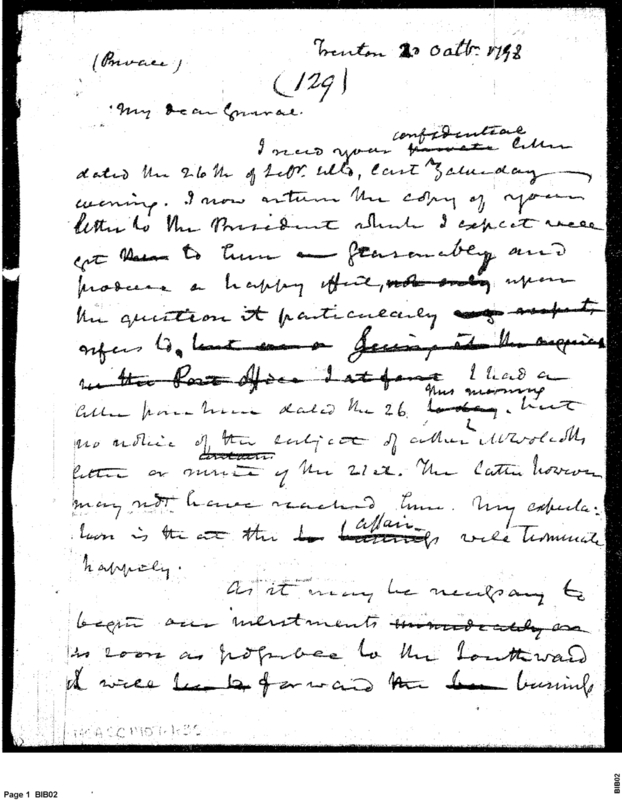 Trenton 20 Octbr. 1798
(Private)
(129)
My dear General.
confidential
I recd your private letter
dated the 26th of Sepr. ulto, last Saturday
evening. I now return the copy of your
letter to the President which I expect will
get to him seasonably and
produce a happy effect, not only upon
the question it particularly
refers to, but
in the Post office I had a
this morning
letter from him dated the 26 to day, but
no notice of the subject of either Mr Wolcotts
letter or mine of the 21st. The latter however
may not have reached him. My expecta-
affair
tion is that the business will terminate
happily.
As it may be necessary to
begin our inlistments immediately or
as soon as possible to the Southward
I will forward the business
Page 1 BIB02
BIB02